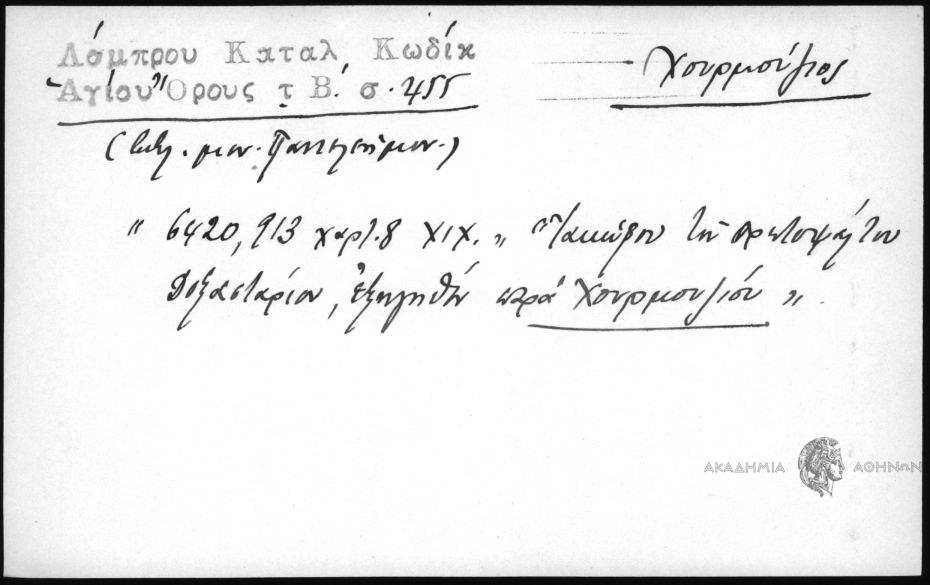 Λάμπρου Καταλ. Κωδίκ
Ἁγίου Ὄρους τ. Β΄. σ. 455
Χουρμούζιος
(Βιβλ. μον. Παντελεήμον.)
" 6420, 913 χαρτ. 8 ΧΙΧ. „ Ἰακώβου τοῦ Πρωτοψάλτου
Δοξαστάριον, ἐξηγηθὲν παρὰ Χουρμουζίου „.
ΑΚΑΔΗΜΙΑ ΑΘΗΝΩΝ